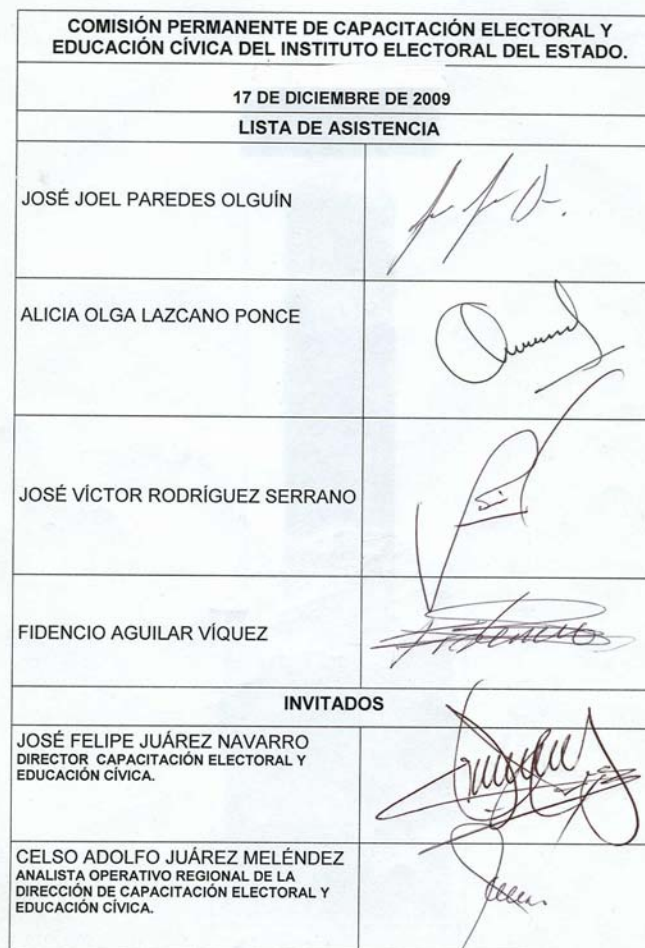 COMISIÓN PERMANENTE DE CAPACITACIÓN ELECTORAL Y
EDUCACIÓN CÍVICA DEL INSTITUTO ELECTORAL DEL ESTADO.
17 DE DICIEMBRE DE 2009
LISTA DE ASISTENCIA
JOSÉ JOEL PAREDES OLGUÍN
ALICIA OLGA LAZCANO PONCE
JOSÉ VÍCTOR RODRÍGUEZ SERRANO
FIDENCIO AGUILAR VÍQUEZ
INVITADOS
JOSÉ FELIPE JUÁREZ NAVARRO
DIRECTOR CAPACITACIÓN ELECTORAL Y
EDUCACIÓN CÍVICA.
CELSO ADOLFO JUÁREZ MELÉNDEZ
ANALISTA OPERATIVO REGIONAL DE LA
DIRECCIÓN DE CAPACITACIÓN ELECTORAL Y
EDUCACIÓN CÍVICA.